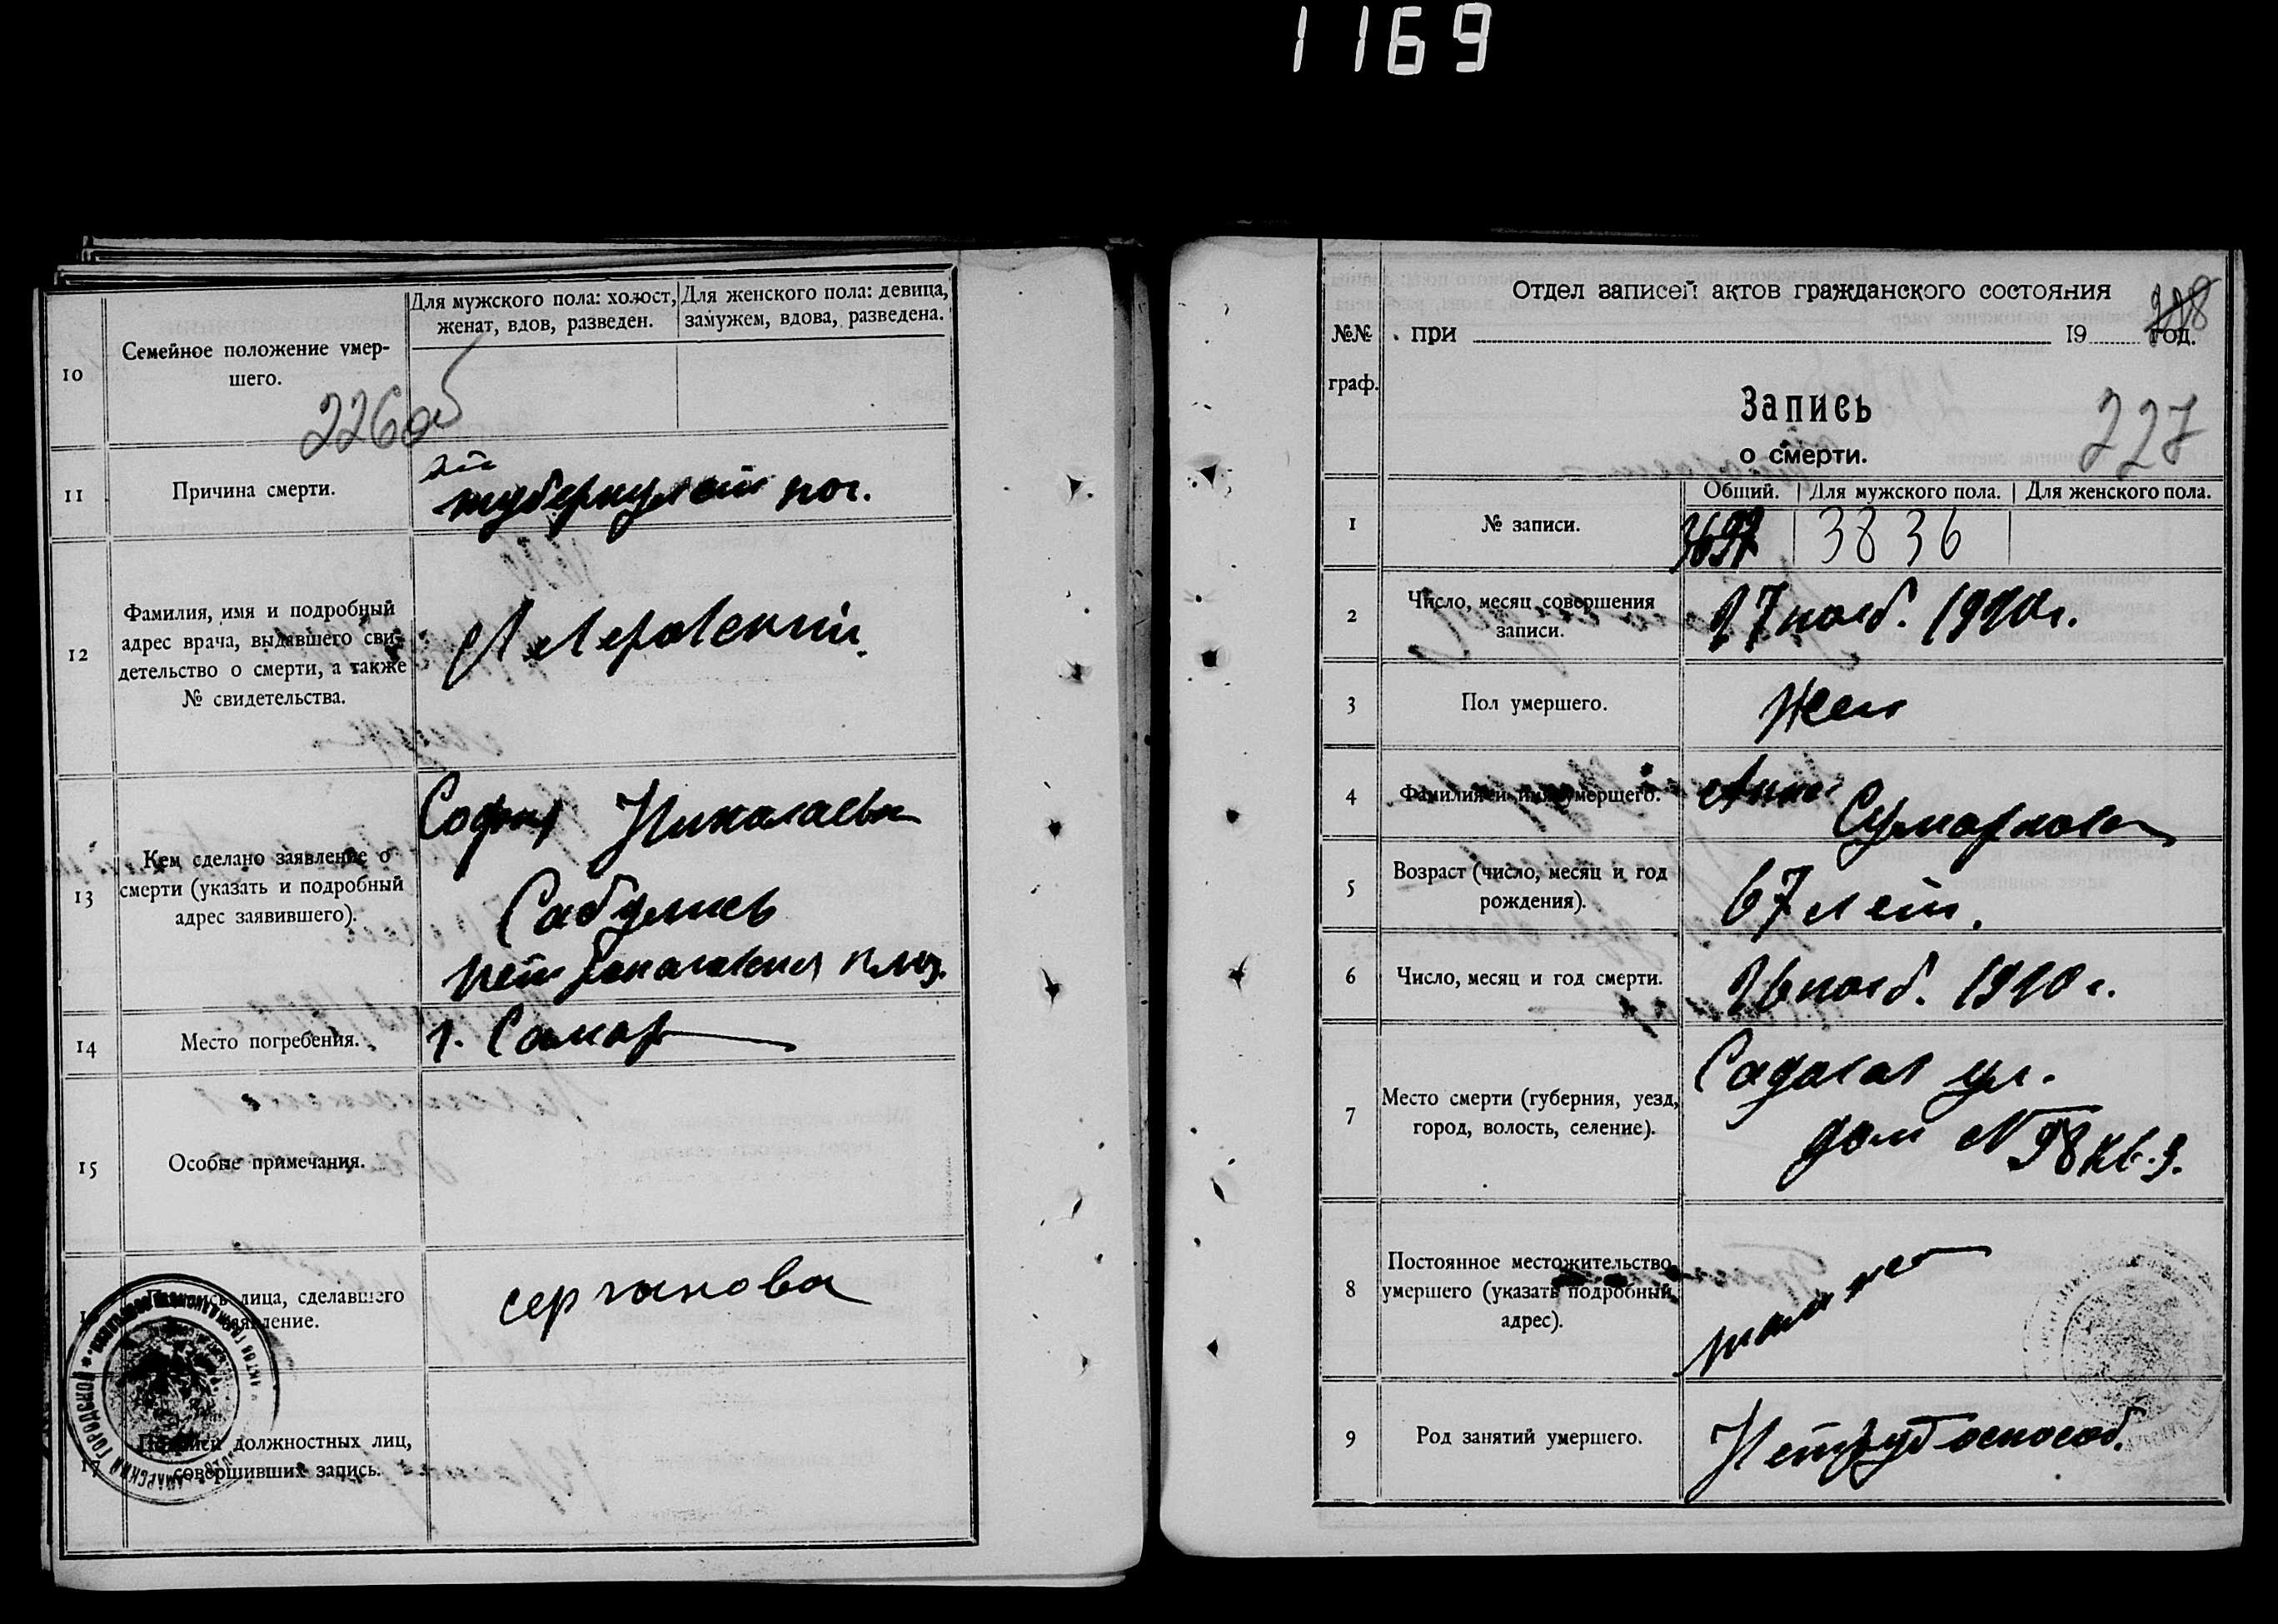 1169
10
Семейное положение умер-
шего.
Для мужского пола: холост,
женат, вдов, разведен.
Для женского пола: девица,
замужем, вдова, разведена.
226об
11
Причина смерти.
от
туберкулеза лег.
12
Фамилия, имя и подробный
адрес врача, выдавшего сви-
детельство о смерти, а также
№ свидетельства.
13
Кем сделано заявление о
смерти (указать и подробный
адрес заявившего).
София Николаевн
14
Место погребения.
г. Самар
15
Особые примечания.
лица, сделавшего
заявление.
серганова
Подписи должностных лиц,
совершивших запись.
№№
граф.
Отдел записей актов гражданского состояния
при 19 год.
Запись
о смерти.
227
1
№ записи.
Общий.
Для мужского пола.
3836
Для женского пола.
2
Число, месяц совершения
записи.
27 нояб. 1920г.
3
Пол умершего.
Жен
4
Фамилия и имя умершего.
Анна
Сумарокова
5
Возраст (число, месяц и год
рождения).
67 лет.
6
Число, месяц и год смерти.
26 нояб. 1920 г.
7
Место смерти (губерния, уезд,
город, волость, селение).
Садовая ул.
дом № 98 кв. 3.
8
Постоянное местожительство
умершего (указать подробный
адрес).
там же
9
Род занятий умершего.
Нетрудоспособ.